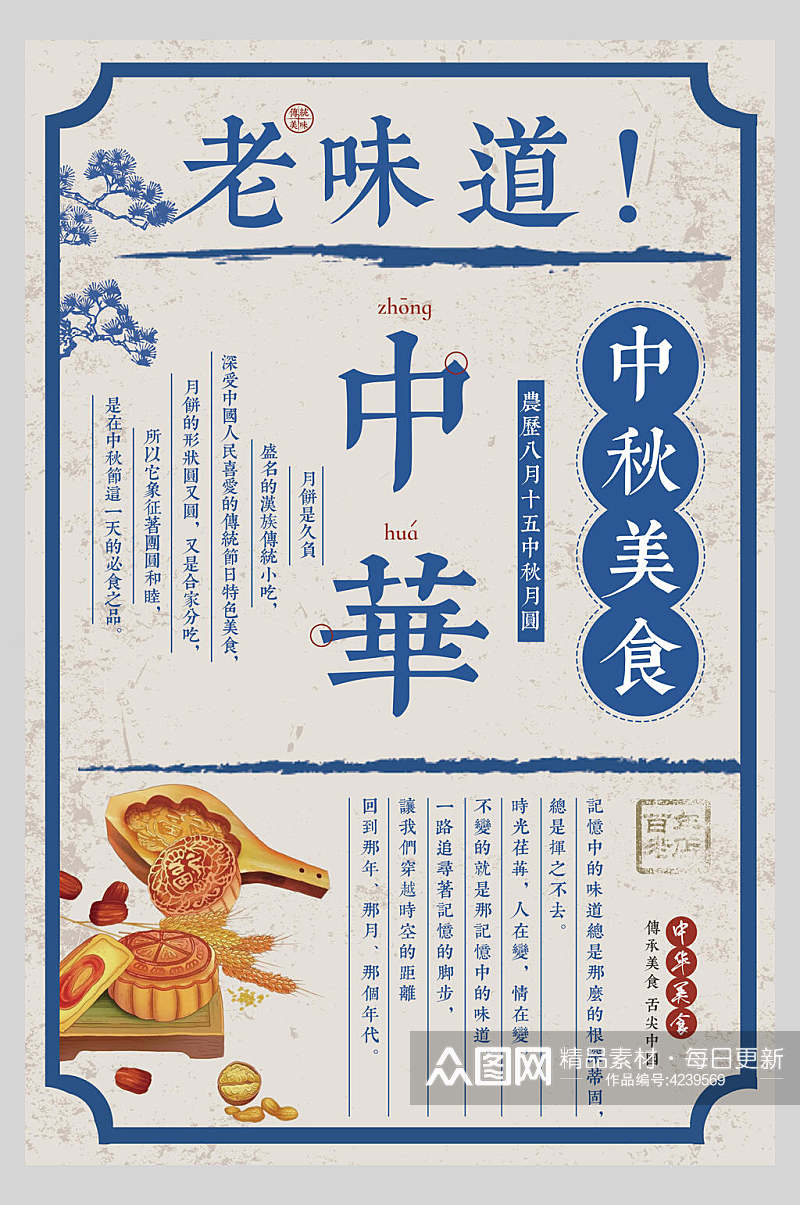 老味道！
傳統
美味
zhōng
中
huá
華
中秋美食
農歷八月十五中秋月圓
月餅是久負
盛名的漢族傳統小吃，
深受中國人民喜愛的傳統節日特色美食，
月餅的形狀圓又圓，又是合家分吃，
所以它象征著團圓和睦，
是在中秋節這一天的必食之品。
百年
老店
中华美食
傳承美食 舌尖中国
記憶中的味道總是那麼的根深蒂固，
總是揮之不去。
時光荏苒，人在變，情在變
不變的就是那記憶中的味道
一路追尋著記憶的脚步，
讓我們穿越時空的距離
回到那年、那月、那個年代。
众图网
精品素材·每日更新
作品编号:4239569